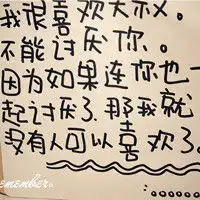 我很喜欢大叔。
不能讨厌你。
因为如果连你也一
起讨厌了.那我就
没有人可以喜欢了。
emember